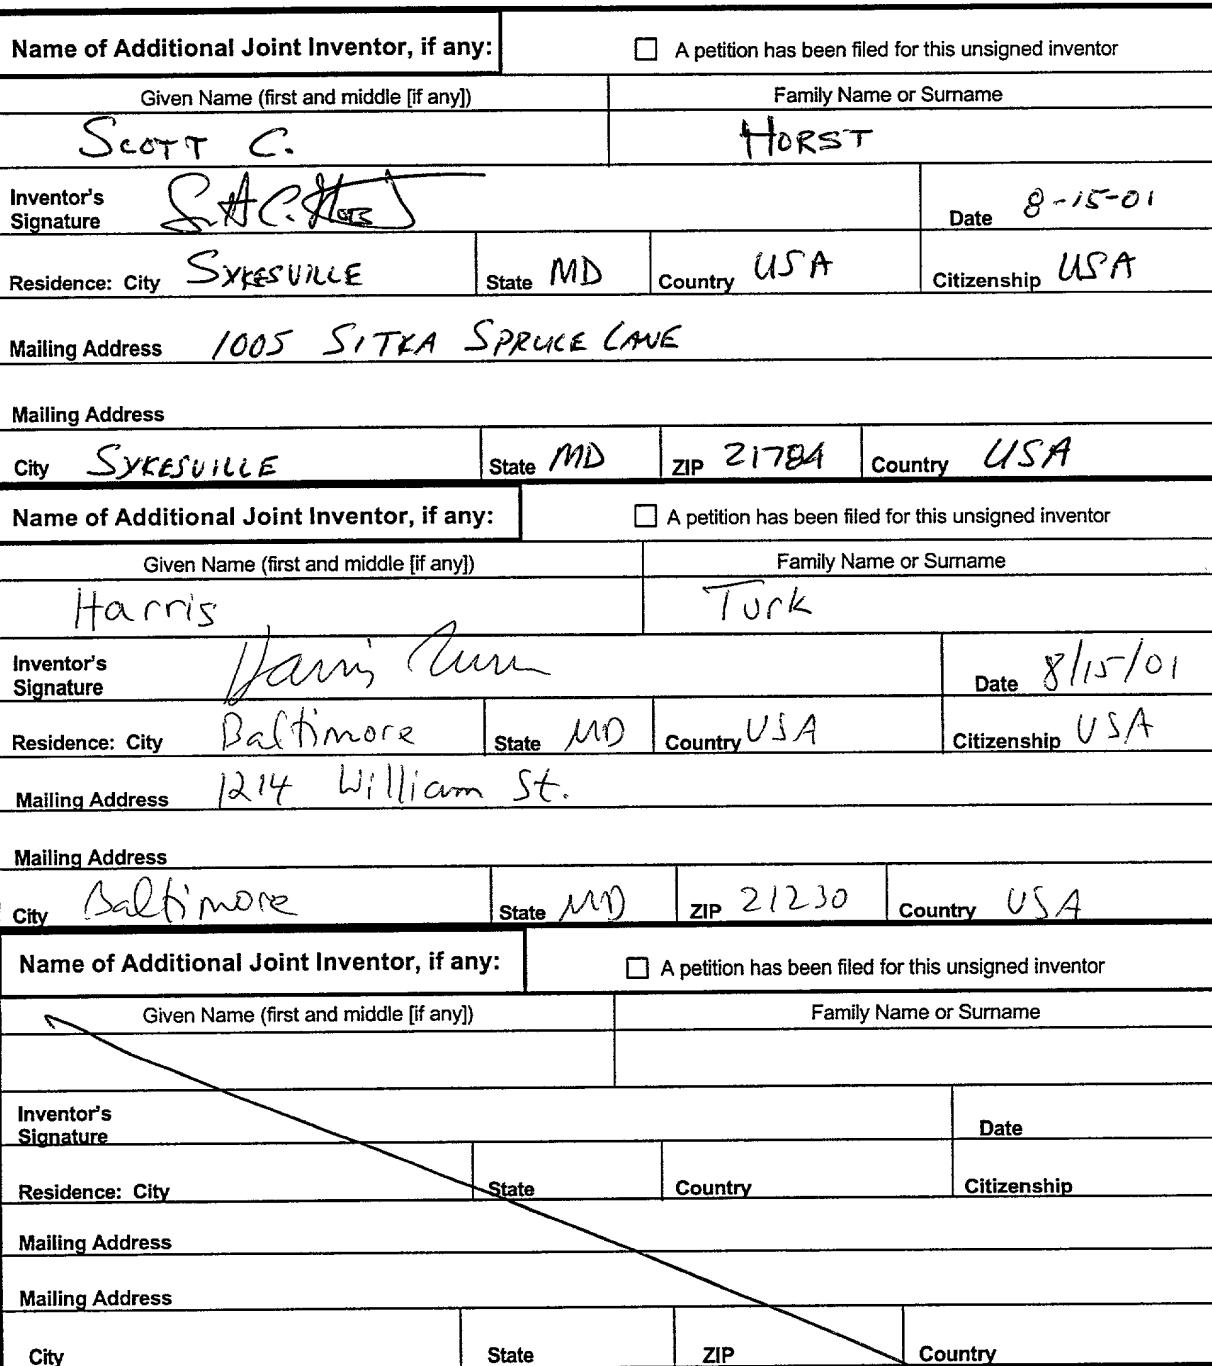 Name of Additional Joint Inventor, if any: A petition has been filed for this unsigned inventor
Given Name (first and middle [if any]) Family Name or Surname
SCOTT C. HORST
Inventor's
Signature Scott C. Horst Date 8-15-01
Residence: City SYKESVILLE State MD Country USA Citizenship USA
Mailing Address 1005 SITKA SPRUCE LANE
Mailing Address
City SYKESVILLE State MD ZIP 21784 Country USA
Name of Additional Joint Inventor, if any: A petition has been filed for this unsigned inventor
Given Name (first and middle [if any]) Family Name or Surname
Harris Turk
Inventor's
Signature Harris Turk Date 8/15/01
Residence: City Baltimore State MD Country USA Citizenship USA
Mailing Address 1214 William St.
Mailing Address
City Baltimore State MD ZIP 21230 Country USA
Name of Additional Joint Inventor, if any: A petition has been filed for this unsigned inventor
Given Name (first and middle [if any]) Family Name or Surname
Inventor's
Signature Date
Residence: City State Country Citizenship
Mailing Address
Mailing Address
City State ZIP Country